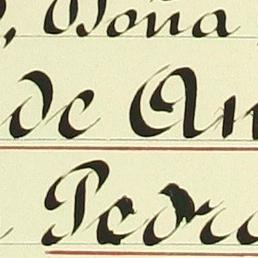 , Doña
de An
Pedro